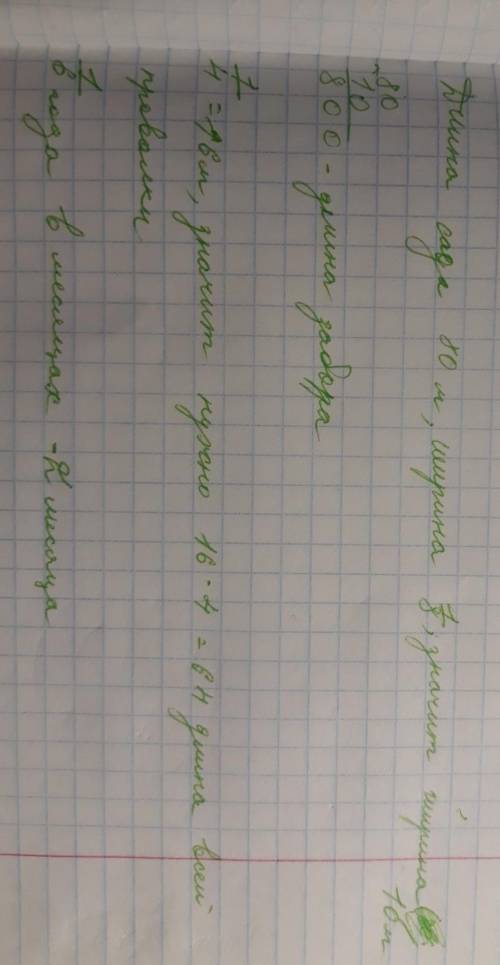 Длина сада 80 м, ширина 1/8, значит ширина 10 м
80
10
800 - длина забора
1/4 = 16 м, значит нужно 16 · 4 = 64 длина всей
проволки
1/6 года в месяцах - 2 месяца